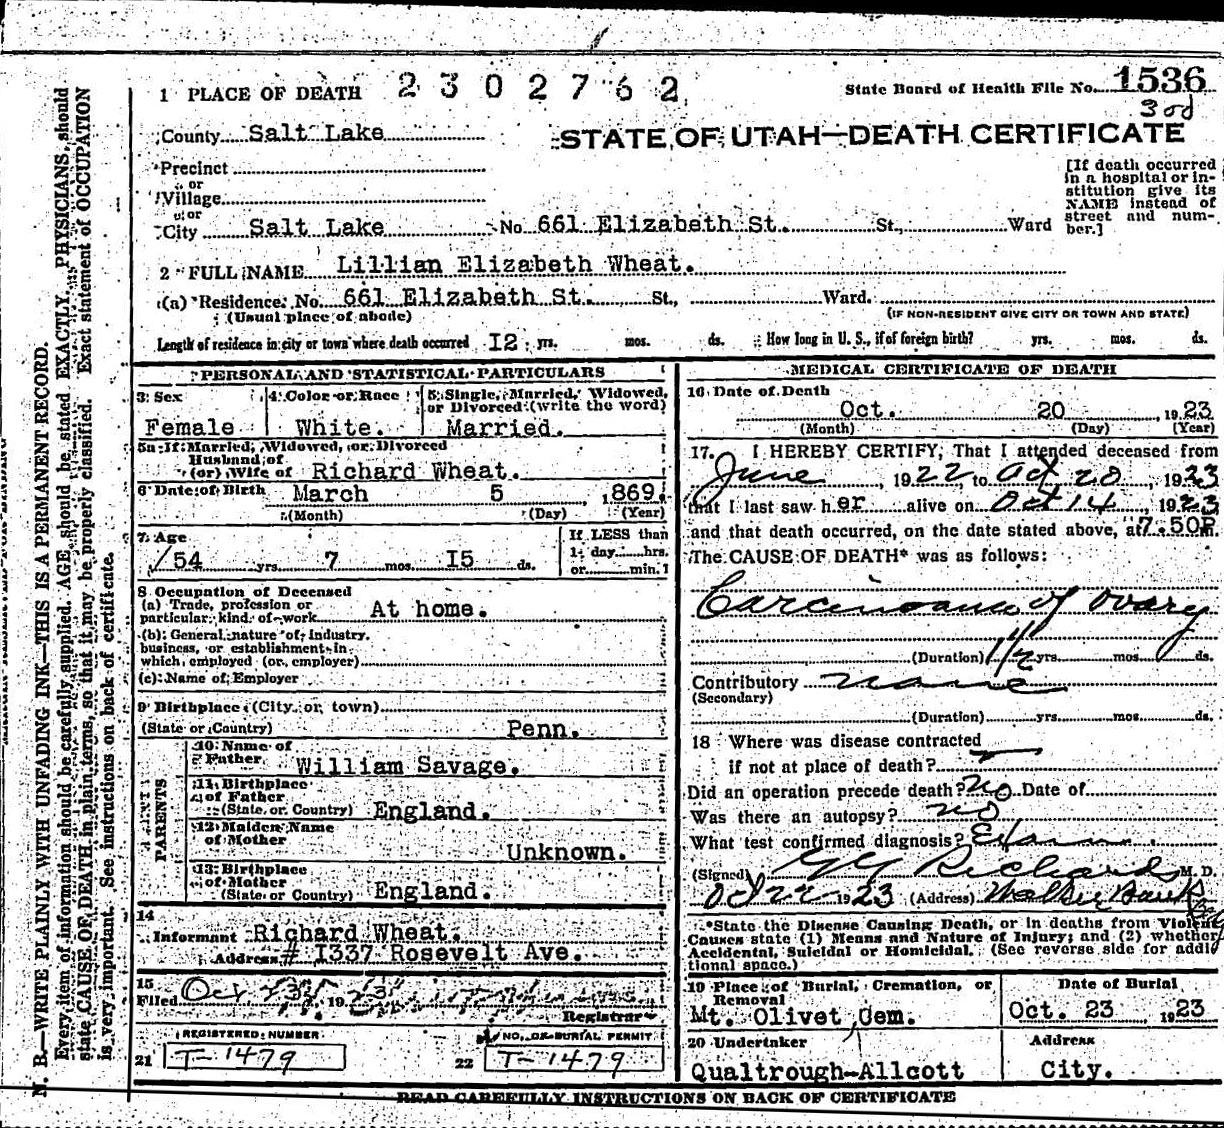 1 PLACE OF DEATH 2302762
State Board of Health File No. 1536
3 od
County Salt Lake
STATE OF UTAH—DEATH CERTIFICATE
Precinct
or
Village
or
City Salt Lake No. 661 Elizabeth St. St., Ward
[If death occurred
in a hospital or in-
stitution give its
NAME instead of
street and num-
ber.]
2 FULL NAME Lillian Elizabeth Wheat.
(a) Residence. No. 661 Elizabeth St. St., Ward.
(Usual place of abode)
(IF NON-RESIDENT GIVE CITY OR TOWN AND STATE)
Length of residence in city or town where death occurred I2 yrs. mos. ds. How long in U. S., if of foreign birth? yrs. mos. ds.
PERSONAL AND STATISTICAL PARTICULARS
3 Sex
Female
4 Color or Race
White.
5 Single, Married, Widowed,
or Divorced (write the word)
Married.
5a If Married, Widowed, or Divorced
Husband of
(or) Wife of Richard Wheat.
6 Date of Birth March 5 ,869.
(Month) (Day) (Year)
7 Age
54 yrs. 7 mos. I5 ds.
If LESS than
1 day hrs.
or min.
8 Occupation of Deceased
(a) Trade, profession or
particular kind of work At home.
(b) General nature of Industry,
business, or establishment in
which employed (or employer)
(c) Name of Employer
9 Birthplace (City or town)
(State or Country) Penn.
PARENTS
10 Name of
Father William Savage.
11 Birthplace
of Father
(State or Country) England.
12 Maiden Name
of Mother
Unknown.
13 Birthplace
of Mother
(State or Country) England.
14
Informant Richard Wheat.
Address # I337 Rosevelt Ave.
15
Filed Oct 23 1923
Registrar
REGISTERED NUMBER
21 T-1479
NO. OF BURIAL PERMIT
22 T-1479
MEDICAL CERTIFICATE OF DEATH
16 Date of Death
Oct. 20 1923
(Month) (Day) (Year)
17. I HEREBY CERTIFY, That I attended deceased from
June, 1922, to Oct 20, 1923
that I last saw her alive on Oct 14, 1923
and that death occurred, on the date stated above, at 7.50P m.
The CAUSE OF DEATH* was as follows:
Carcinoma of ovary
(Duration) 1 1/2 yrs. mos. ds.
Contributory none
(Secondary)
(Duration) yrs. mos. ds.
18 Where was disease contracted
if not at place of death?
Did an operation precede death? no Date of
Was there an autopsy? no
What test confirmed diagnosis? Exam
(Signed) G G Richards M. D.
Oct 22 1923 (Address) Walker Bank Bldg
*State the Disease Causing Death, or in deaths from Violent
Causes state (1) Means and Nature of Injury; and (2) whether
Accidental, Suicidal or Homicidal. (See reverse side for addi-
tional space.)
19 Place of Burial, Cremation, or
Removal
Mt. Olivet Cem.
Date of Burial
Oct. 23 1923
20 Undertaker
Qualtrough-Allcott
Address
City.
READ CAREFULLY INSTRUCTIONS ON BACK OF CERTIFICATE
N. B.—WRITE PLAINLY WITH UNFADING INK—THIS IS A PERMANENT RECORD.
Every item of information should be carefully supplied. AGE should be stated EXACTLY. PHYSICIANS should
state CAUSE OF DEATH in plain terms, so that it may be properly classified. Exact statement of OCCUPATION
is very important. See instructions on back of certificate.